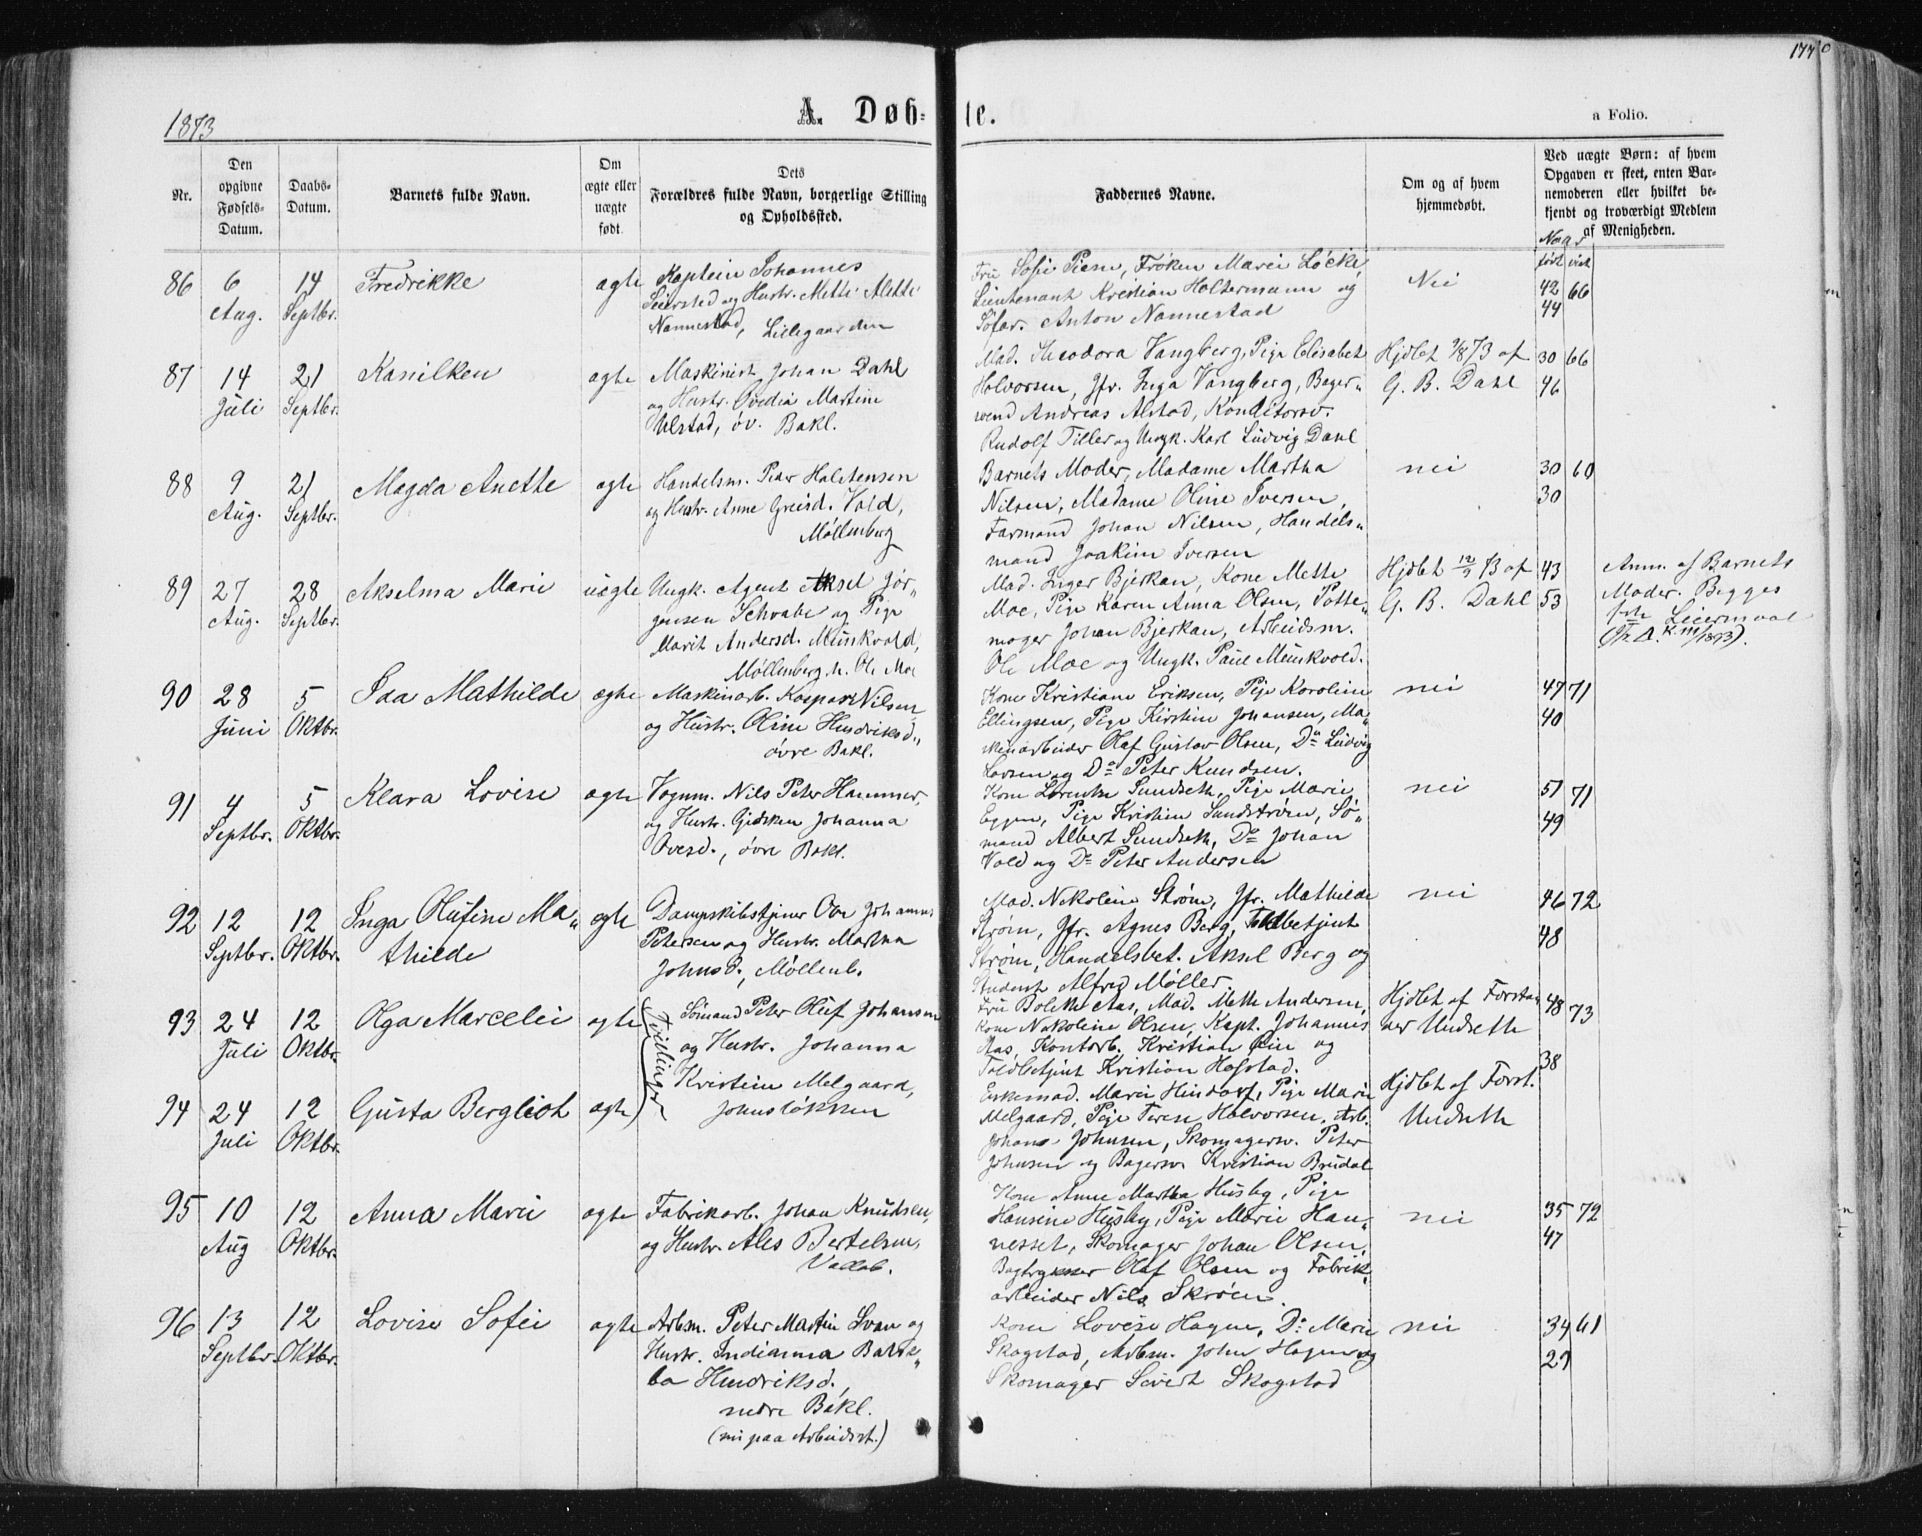 1770
1873
A. Døb-
te.
a Folio.
Nr.
Den
opgivne
Fødsels-
Datum.
Daabs-
Datum.
Barnets fulde Navn.
Om
ægte eller
uægte
født.
Dets
Forældres fulde Navn, borgerlige Stilling
og Opholdssted.
Faddernes Navne.
Om og af hvem
hjemmedøbt.
Ved uægte Børn: af hvem
Opgaven er skeet, enten Bar-
nemoderen eller hvilket be-
kjendt og troværdigt Medlem
af Menigheden.
født
viet
86
6
Aug.
14
Septbr.
Fredrikke
ægte
Kaptein Johannes
Seiersted og Hustr. Mette Alette
Nannestad, Lillegaarden
Fru Sofie Piene, Frøken Marie Løcke,
Lieutenant Kristian Holtermann og
Søfar. Anton Nannestad
Nei
42 66
44
87
14
Juli
21
Septbr.
Kanilken
ægte
Maskinist Johan Dahl
og Hustr. Ovedia Martine
Ulstad, øv. Bakl.
Mad. Theodora Vangberg, Pige Elisabet
Halvorsen, Jfr. Inga Vangberg, Bager-
svend Andreas Alstad, Konditorsv.
Rudolf Tiller og Ungk. Karl Ludvig Dahl
Hjdbt 7/8 73 af
G. B. Dahl
30 66
46
88
9
Aug.
21
Septbr.
Magda Anette
ægte
Handelsm. Peder Halstensen
og Hustr. Anne Greisd. Vold,
Møllenberg
Barnets Moder, Madame Martha
Nilsen, Madame Oline Iversen,
Formand Johan Nilsen, Handels-
mand Joakim Iversen
nei
30 60
30
89
27
Aug.
28
Septbr.
Akselma Marie
uægte
Ungk. Agent Aksel Jør-
gensen Schvabe og Pige
Marit Andersd. Munkvold,
Møllenberg h. Ole Moe
Mad. Inger Bjerkan, Kone Mette
Moe, Pige Karen Anna Olsen, Potte-
mager Johan Bjerkan, Arbeidsm.
Ole Moe og Ungk. Paul Munkvold.
Hjdbt 12/9 73 af
G. B. Dahl
43
53
Anm. af Barnets
Moder. Begges
Leiermaal
90
28
Juni
5
Oktbr.
Saa Mathilde
ægte
Maskinarb. Kaspar Nilsen
og Hustr. Oline Hendriksd.,
øvre Bakl.
Kone Kristiane Eriksen, Pige Karoline
Ellingsen, Pige Kirstine Johansen, Ma-
skinarbeider Olaf Gustav Olsen, Do Ludvig
Larsen og Do Peter Knudsen.
nei
47 71
40
91
4
Septbr.
5
Oktbr.
Klara Lovise
ægte
Vognm. Nils Peter Hammer,
og Hustr. Gjertken Johanna
Ovesd., øvre Bakl.
Kone Lorentse Sundseth, Pige Marie
Eggen, Pige Kristine Sundstrøm, Sø-
mand Albert Sundseth, Do Johan
Vold og Do Peter Andersen
nei
51 71
49
92
12
Septbr.
12
Oktbr.
Inga Olufine Ma-
thilde
ægte
Dampskibstjener Ove Johannes
Petersen og Hustr. Martha
Johnsd., Møllenb.
Mad. Nikoline Strøm, Jfr. Mathilde
Strøm, Jfr. Agnes Berg, Toldbetjent
Strøm, Handelsbet. Aksel Berg og
Student Alfred Møller.
nei
46 72
48
93
24
Juli
12
Oktbr.
Olga Marcelie
ægte
Tvillinger
Sømand Peter Oluf Johansen
og Hustr. Johanna
Kristine Melgaard,
Johnsløkken
Fru Bolette Aas, Mad. Mette Andersen,
Kone Nikoline Olsen, Kapt. Johannes
Aas, Kontorb. Kristian Lein og
Toldbetjent Kristian Hofstad.
Hjdbt af Forstan-
der Undseth
48 73
38
94
24
Juli
12
Oktbr.
Gusta Bergliot
ægte
Enkemad. Marie Hindorf, Pige Marie
Melgaard, Pige Terese Halvorsen, Arb.
Johans Johnsen, Skomagersv. Peter
Johnsen og Bagersv. Kristian Brudal
Hjdbt af Forst.
Undseth
95
10
Aug
12
Oktbr.
Anna Marie
ægte
Fabrikarb. Johan Knudsen,
og Hustr. Ales Bertelsen,
Kone Anne Martha Husby, Pige
Hansine Husby, Pige Marie Han-
nesset, Skomager Johan Olsen,
Bogtrykker Olaf Olsen og Fabrik-
arbeider Nils Skrøen.
nei
35 72
47
96
13
Septbr.
12
Oktbr.
Lovise Sofie
ægte
Arbm. Peter Martin Svan og
Hustr. Indianna Batsk-
ba Hendriksd.,
nedre Bakl.
(nu paa Arbeidsst.)
Kone Lovise Hagen, Do Marie
Skogstad, Arbm. John Hagen og
Skomager Sivert Skogstad
nei
34 61
29